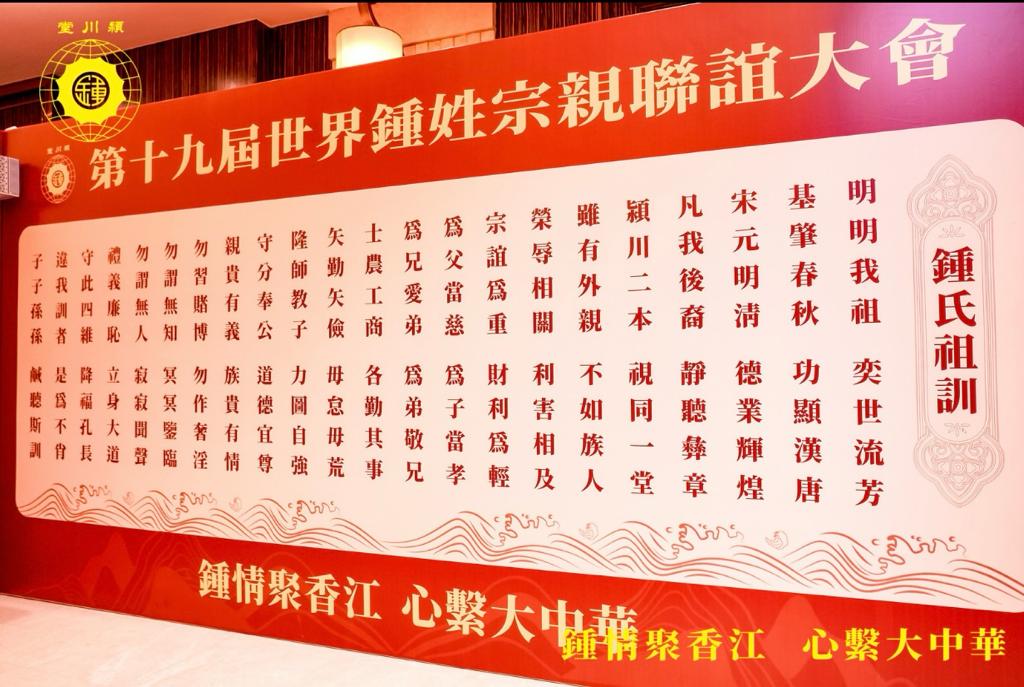 潁川堂
鍾
第十九屆世界鍾姓宗親聯誼大會
潁川堂
鍾氏祖訓
明明我祖 奕世流芳
基肇春秋 功顯漢唐
宋元明清 德業輝煌
凡我後裔 靜聽彝章
潁川二本 視同一堂
雖有外親 不如族人
榮辱相關 利害相及
宗誼為重 財利為輕
為父當慈 為子當孝
為兄愛弟 為弟敬兄
士農工商 各勤其事
矢勤矢儉 毋怠毋荒
隆師教子 力圖自強
守分奉公 道德宜尊
親貴有義 族貴有情
勿習賭博 勿作奢淫
勿謂無知 冥冥鑒臨
勿謂無人 寂寂聞聲
禮義廉恥 立身大道
守此四維 降福孔長
違我訓者 是為不肖
子子孫孫 鹹聽斯訓
鍾情聚香江 心繫大中華
鍾情聚香江 心繫大中華